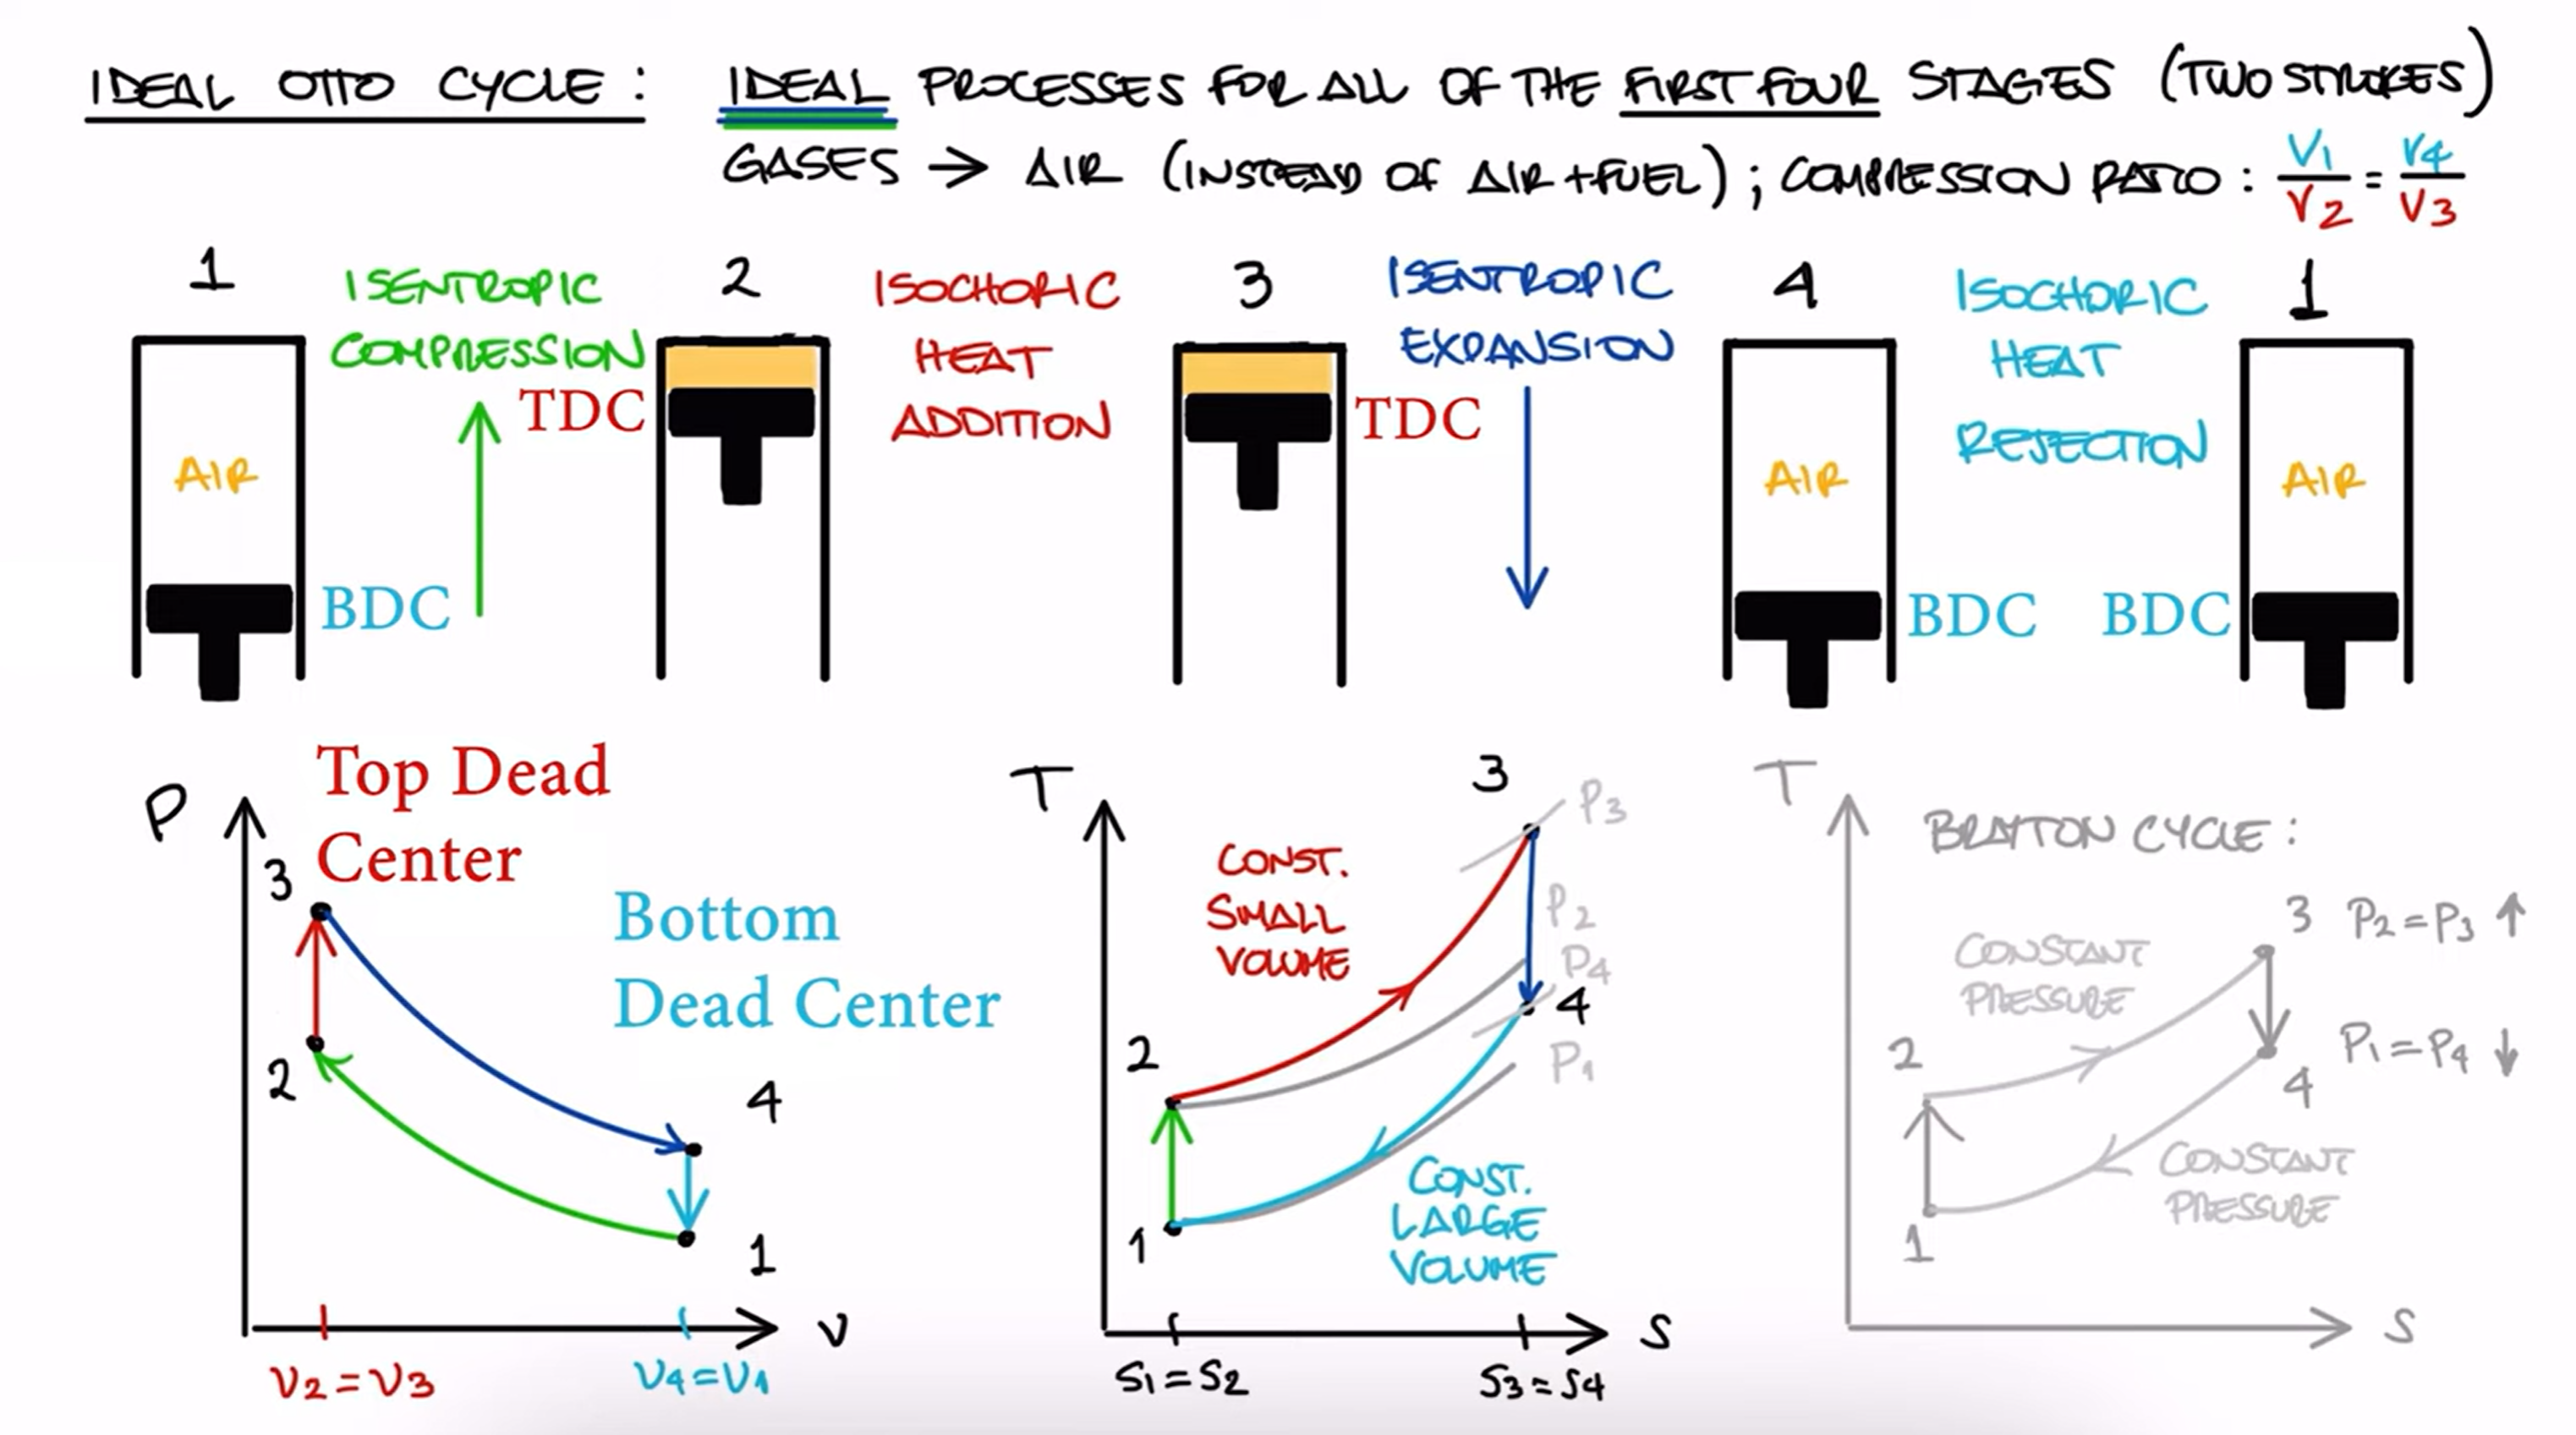 IDEAL OTTO CYCLE : IDEAL PROCESSES FOR ALL OF THE FIRST FOUR STAGES (TWO STROKES)
GASES → AIR (INSTEAD OF AIR + FUEL) ; COMPRESSION RATIO : V1/V2 = V4/V3
1
ISENTROPIC
COMPRESSION
2
ISOCHORIC
HEAT
ADDITION
3
ISENTROPIC
EXPANSION
4
ISOCHORIC
HEAT
REJECTION
1
TDC
TDC
AIR
AIR
AIR
BDC
BDC
BDC
P
Top Dead
Center
3
2
Bottom
Dead Center
4
1
v
v2 = v3
v4 = v1
T
3
P3
CONST.
SMALL
VOLUME
P2
P4
4
P1
2
1
CONST.
LARGE
VOLUME
s
s1 = s2
s3 = s4
T
BRAYTON CYCLE :
3 P2 = P3 ↑
CONSTANT
PRESSURE
2
P1 = P4 ↓
4
CONSTANT
PRESSURE
1
s